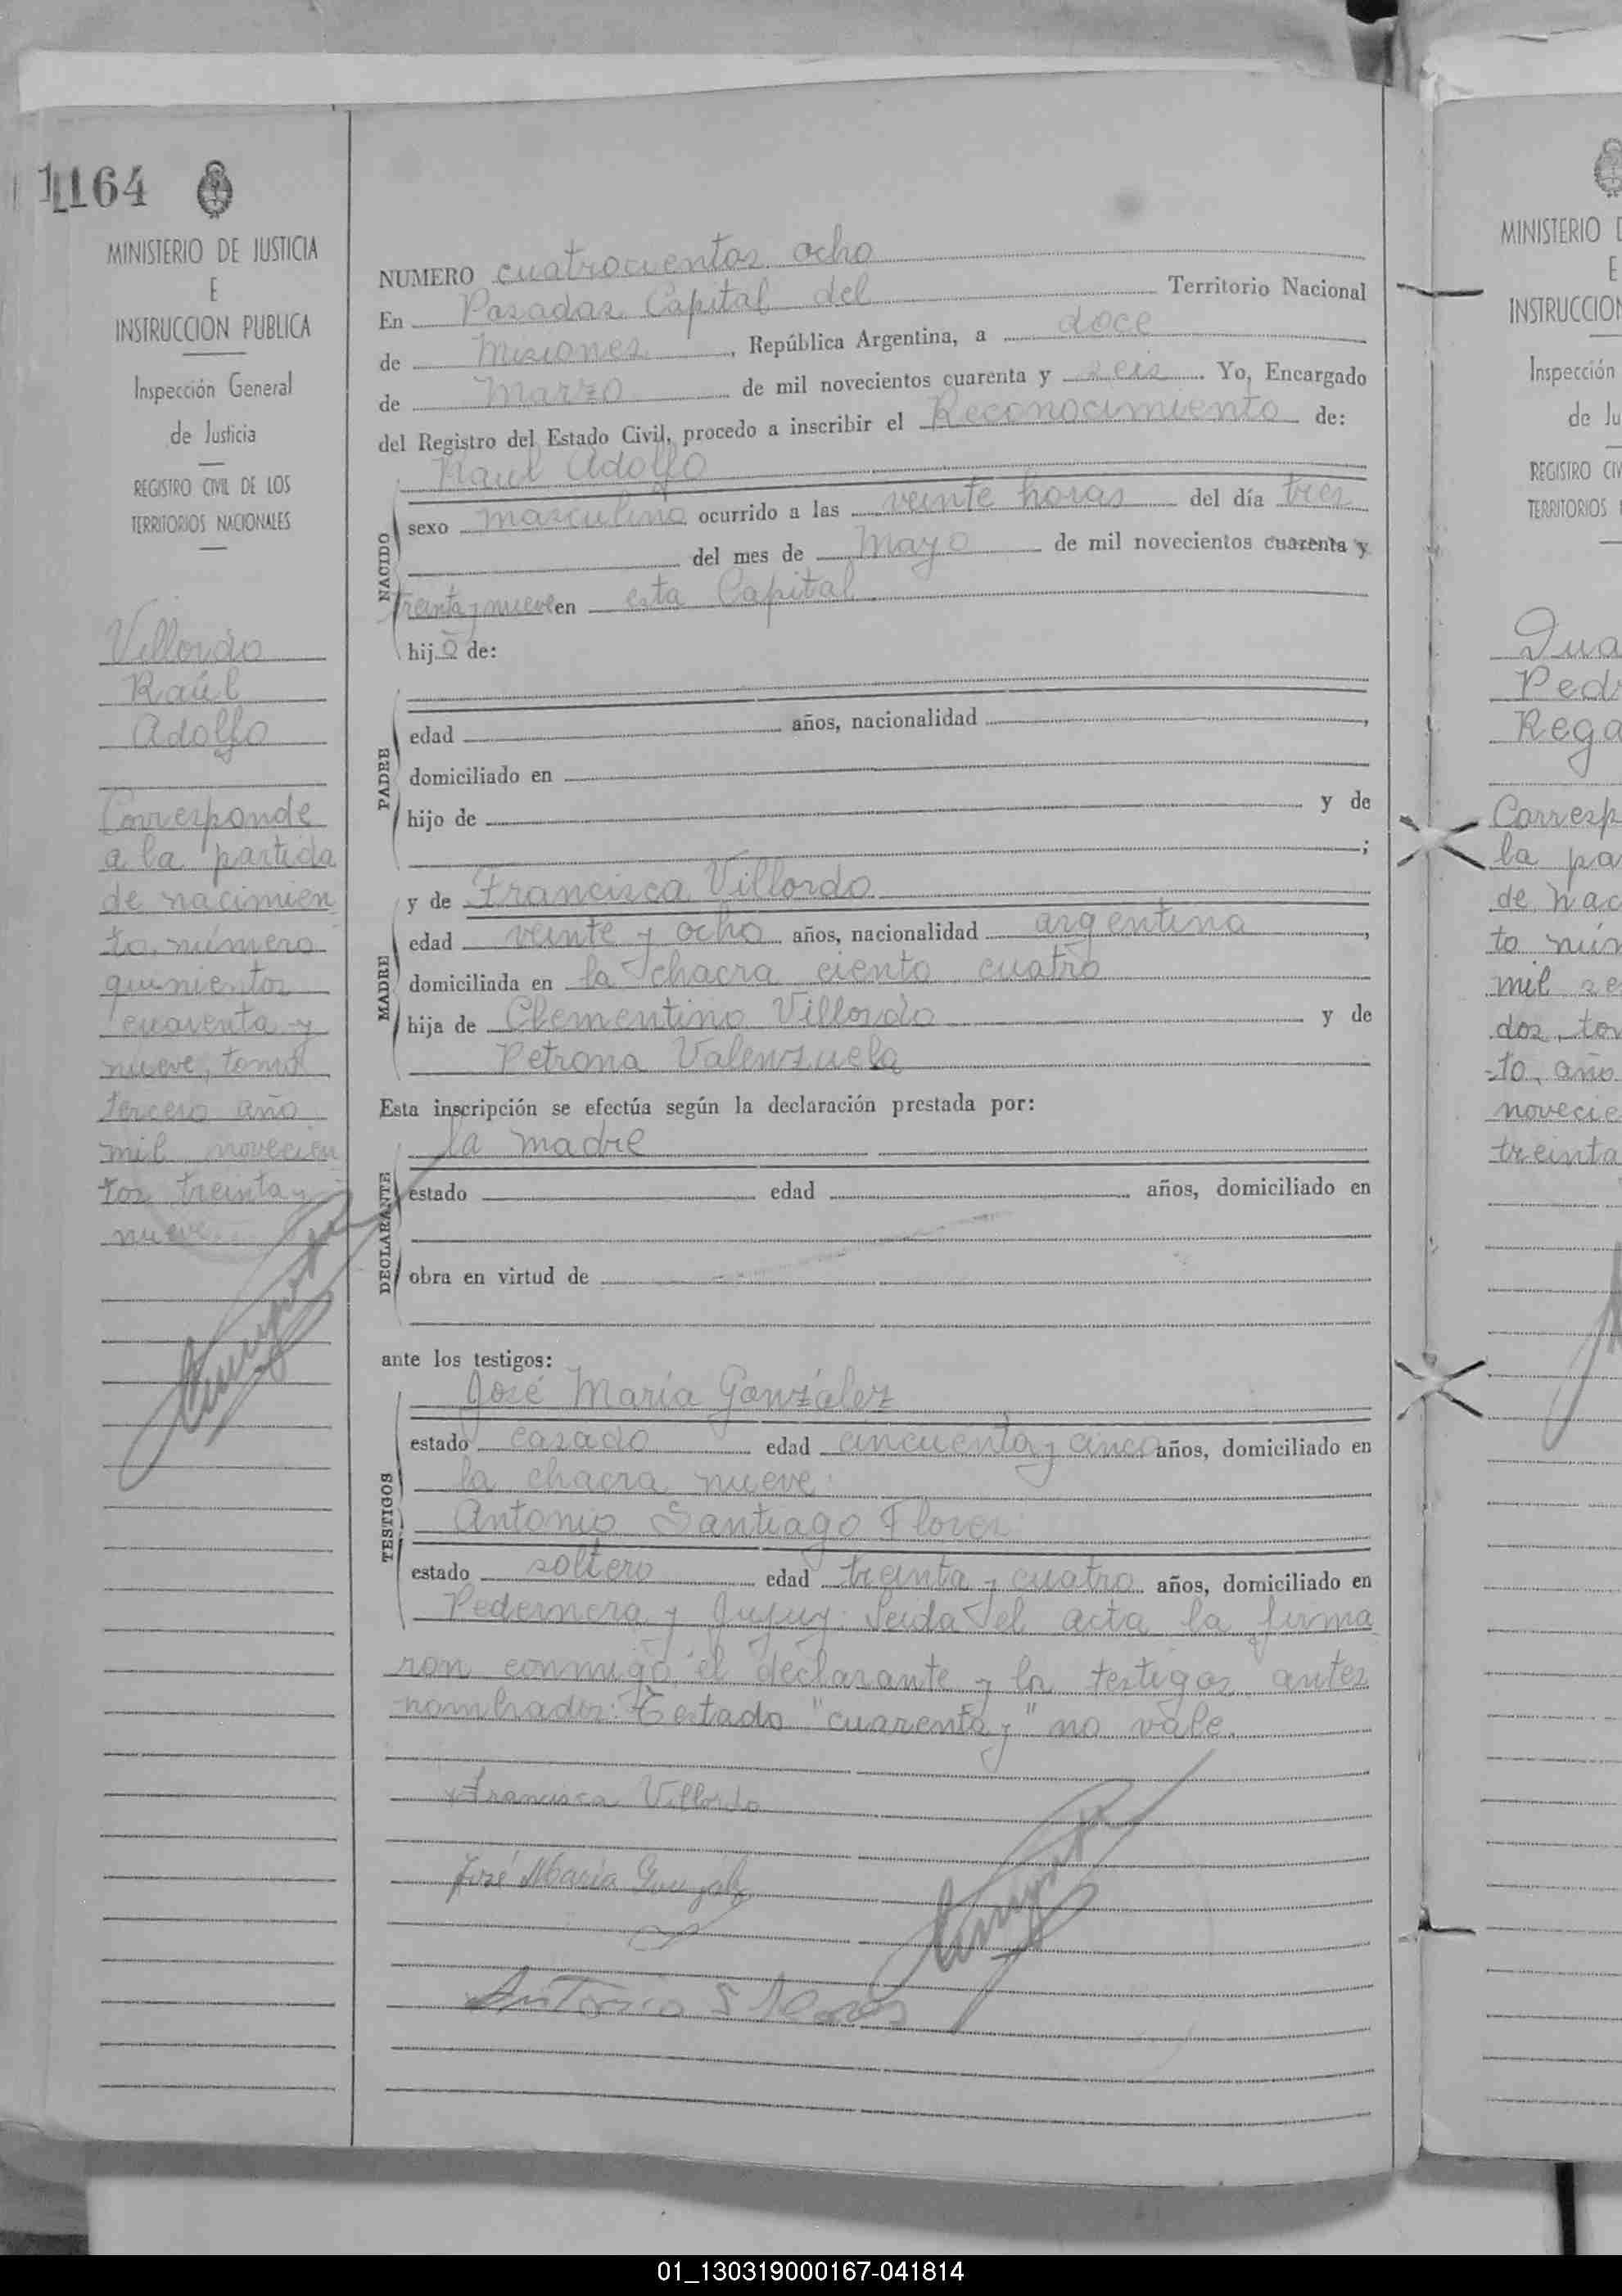 1164
MINISTERIO DE JUSTICIA
E
INSTRUCCION PUBLICA
Inspección General
de Justicia
REGISTRO CIVIL DE LOS
TERRITORIOS NACIONALES
Villordo
Raúl
Adolfo
Corresponde
a la partida
de nacimien
to número
quinientos
cuarenta y
nueve, tomo
tercero año
mil novecien
tos treinta y
nueve
NUMERO cuatrocientos ocho
En Posadas Capital del Territorio Nacional
de Misiones, República Argentina, a doce
de Marzo de mil novecientos cuarenta y seis. Yo, Encargado
del Registro del Estado Civil, procedo a inscribir el Reconocimiento de:
Raul Adolfo
NACIDO
sexo masculino ocurrido a las veinte horas del día tres
del mes de Mayo de mil novecientos cuarenta y
treinta y nueve en esta Capital
hijo de:
PADRE
edad años, nacionalidad ,
domiciliado en
hijo de y de
;
y de Francisca Villordo
MADRE
edad veinte y ocho años, nacionalidad argentina,
domiciliada en la chacra ciento cuatro
hija de Clementino Villordo y de
Petrona Valenzuela
Esta inscripción se efectúa según la declaración prestada por:
la madre
DECLARANTE
estado edad años, domiciliado en
obra en virtud de
ante los testigos:
José María González
TESTIGOS
estado casado edad cincuenta y cinco años, domiciliado en
la chacra nueve.
Antonio Santiago Flores
estado soltero edad treinta y cuatro años, domiciliado en
Pedernera y Jujuy. Leida el acta la firma
ron conmigo el declarante y los testigos antes
nombrados: Testado "cuarenta y" no vale.
Francisca Villordo
José María González
Antonio S Flores
MINISTERIO D
E
INSTRUCCION
Inspección
de Ju
REGISTRO CIV
TERRITORIOS
Dua
Ped
Rega
Corresp
la pa
de nac
to núm
mil se
dos, to
to, año
novecie
treinta
01_130319000167-041814